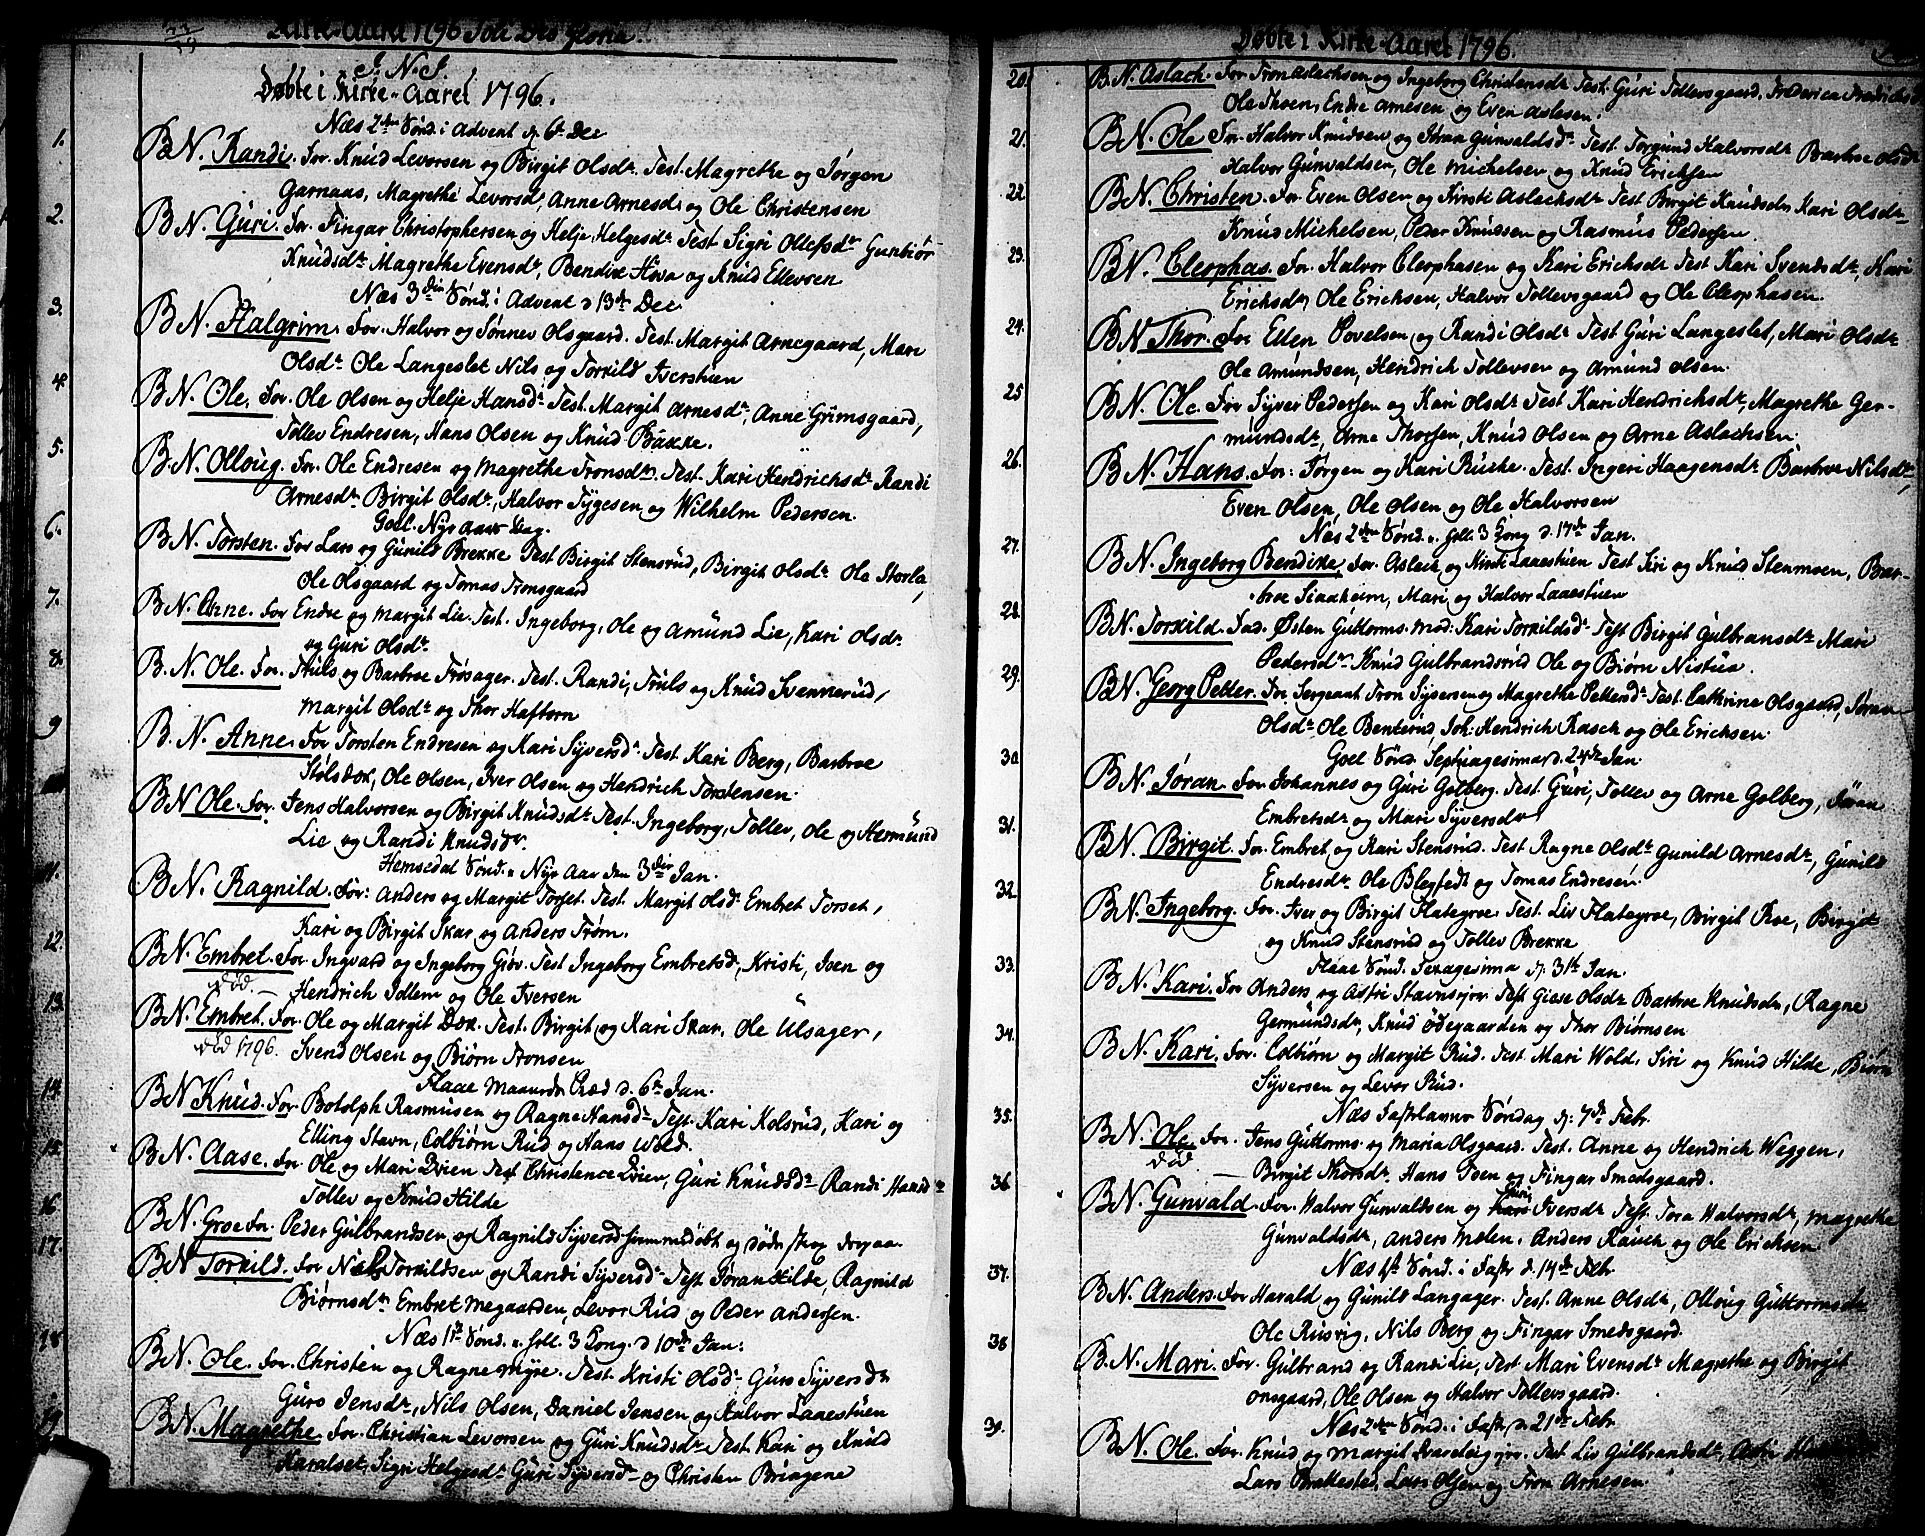 Kirke-Aaret 1796 Soli Deo Gloria.
J. N. J.
Døbte i Kirke-Aaret 1796.
Næs 2den Sønd. i Advent d. 6te Dec
1. B N. Randi. For. Knud Levorsen og Birgit Olsdr. Test. Magrethe og Jørgen
Garnaas, Magrethe Levorsd, Anne Arnesd. og Ole Christensen
2. B N. Guri. For. Fingar Christophersen og Helje Helgesdr. Test Sigri Olefsdr Gunbiør
Knudsdr Magrethe Evensdr, Bendixe Hova og Knud Ellevsen
Næs 3die Sønd. i Advent d 13de Dec
3. B N. Halgrim. For. Halvor og Sønnev Olsgaard. Test. Margit Arnegaard, Mari
Olsdr Ole Langeslet Nils og Torkild Iverstuen
4. B N. Ole. For. Ole Olsen og Helje Hansdr. Test. Margit Arnesdr, Anne Grimsgaard,
Tollev Endresen, Hans Olsen og Knud Bakke.
5. B. N. Olloug. For. Ole Endresen og Magrethe Tronsdr. Test. Kari Hendrichsdr Randi
Arnesdr Birgit Olsdr, Halvor Tygesen og Wilhelm Pedersen.
Goel. Nyt Aars Dag.
6. B N. Torsten. For Lars og Gunild Brekke Test Birgit Stensrud, Birgit Olsdr Ole Storla,
Ole Olsgaard og Tomas Tronsgaard
7. B N. Anne. For Endre og Margit Lie. Test. Ingeborg, Ole og Amund Lie, Kari Olsdr
og Guri Olsdr
8. B. N. Ole. For. Truls og Barbroe Frøsager. Test. Randi, Truls og Knud Svennerud,
Margit Olsdr og Thor Haftorn
9 B. N. Anne. For Torsten Endresen og Kari Syversdr. Test. Kari Berg, Barbroe
Stølsdok, Ole Olsen, Iver Olsen og Hendrich Torstensen.
B N Ole. For. Jens Halvorsen og Birgit Knudsdr Test. Ingeborg, Tollev, Ole og Hermund
Lie og Randi Knudsdr.
Hemsedal Sønd. e. Nyt Aar den 3die Jan.
11. B N. Ragnild. For: Anders og Margit Torset. Test. Margit Olsd. Embret Torset,
Kari og Birgit Skar og Anders Trøm.
12. B N. Embret. For. Ingvard og Ingeborg Giøv. Test Ingeborg Embretsd, Kristi, Isen og
død. — Hendrich Tollem og Ole Iversen
13. B N. Embret. For. Ole og Margit Dok. Test. Birgit og Kari Skar, Ole Ulsager,
død 1796. Svend Olsen og Biørn Tronsen
Flaae Maaurdr Præd d. 6te Jan.
14 B N Knud. For. Botolph Rasmusen og Ragne Hansdr Test. Kari Kolsrud, Kari og
Elling Stavn, Colbiørn Rud og Hans Wold.
15. B N. Aase. For. Ole og Mari Dvien Test Christence Dvien, Guri Knudsdr Randi Hansdr
Tollev og Knud Hilde
16 B N. Groe For. Peder Gulbrandsen og Ragnild Syversd hiemmedøbt og døde strax derpaa.
17. B N Torkild. For Nils Torkildsen og Randi Syversdr Test Jøran Hilde, Ragnild
Biørnsdr Embret Megaarden, Levor Rud og Peder Andersen.
Næs 1ste Sønd. e. Hell. 3 Kong. d 10de Jan:
18 B N. Ole. For. Christen og Ragne Myre. Test. Kristi Olsdr Guro Syversdr
Guro Jensdr, Nils Olsen, Daniel Jensen og Halvor Laaestuen
19 B N. Magrethe For. Christian Levorsen og Guri Knudsdr Test. Kari og Knud
Haralset, Sigri Helgesdr Guri Syversdr og Christen Bringene
Døbte i Kirke-Aaret 1796.
20. B. N. Aslach. For Tron Aslachsen og Ingeborg Christensdr Test. Guri Tollevsgaard, Frederica Fredrichsd
Ole Thoen, Endre Arnesen og Even Aslesen.
21. B N. Ole For. Halvor Knudsen og Goroe Gunvaldsd. Test. Torgund Halvorsdr Barbroe Olsdr
Halvor Gunvaldsen, Ole Michelsen og Knud Erichsen
22. B N. Christen. For Even Olsen og Kristi Aslachsdr Test Birgit Knudsdr Kari Olsdr
Knud Michelsen, Peder Knudsen og Rasmus Pedersen
23. B N. Cleophas. For. Halvor Cleophasen og Kari Erichsdr Test Kari Svendsdr, Kari
Erichsdr Ole Erichsen, Halvor Tollevsgaard og Ole Cleophasen.
24. B N Thor. For Ellen Povelsen og Randi Olsdr Test Guri Langeslet, Mari Olsdr
Ole Amundsen, Hendrich Tollevsen og Amund Olsen.
25 B N. Ole. For Syver Pedersen og Kari Olsdr Test Kari Hendrichsdr, Magrethe Ger-
mundsdr, Arne Thorsen, Knud Olsen og Arne Aslachsen.
26. B N. Hans. For: Jørgen og Kari Ruche. Test. Ingeri Haagensdr Barbroe Nilsdr,
Even Olsen, Ole Olsen og Ole Halvorsen
Næs 2den Sønd. e. Hell. 3 Kong d. 17de Jan.
27. B N. Ingeborg Bendixe. For. Aslach og Kirsti Laaestuen Test Siri og Knud Stenmoen, Bar-
broe Siaaheim, Mari og Halvor Laaestuen
28. B N. Torkild. Fad. Østen Guttorms. Mod: Kari Torkildsdr Test Birgit Gulbransdr Mari
Pedersdr Knud Gulbrandsrud Ole og Biørn Nistua.
29. B N. Georg Petter. For Sergeant Tron Syversen og Magrethe Pettersdr Test. Cathrine Olsgaard, Jøran
Olsdr Ole Benterud, Joh: Hendrich Rasch og Ole Erichsen.
Goel Sønd. Septuagesima d. 24de Jan
30 B N. Jøran. For Johannes og Guri Golberg. Test. Guri, Tollev og Arne Golberg, Jøran
Embretsdr og Mari Syversdr
31. B N. Birgit. For. Embret og Kari Stensrud. Test Ragne Olsdr Gunild Arnesdr, Gunild
Endresdr Ole Blegfedt og Tomas Endresen.
32. B N. Ingeborg. For. Iver og Birgit Flategroe. Test. Liv Flategroe, Birgit Roe, Birgit
og Knud Stensrud og Tollev Brekke
Flaae Sønd. Sexagesima d. 31te Jan.
33. B N. Kari. For Anders og Astri Stavnseyer Test Giøse Olsdr Barbroe Knudsdr, Ragne
Germundsdr, Knud Ødegaarden og Thor Biørnsen
34. B N. Kari. For. Colbiørn og Margit Rud. Test Mari Wold. Siri og Knud Hilde, Biørn
Syversen og Levor Rud.
Næs Fastelavns Søndag d. 7de Febr.
35. B N. Ole For. Jens Guttorms. og Maria Olsgaard. Test. Anne og Hendrich Weggen,
død. — Birgit Thorsdr. Hans Toen og Fingar Smedsgaard.
36 B N. Gunvald. For. Halvor Gunvaldsen og Guri Iversdr Test. Tora Halvorsdr, Magrethe
Gunvaldsdr, Anders Molen, Anders Rauch og Ole Erichsen
Næs 1ste Sønd. i Faste d. 14de Febr
37. B N. Anders For Harald og Gunild Langager. Test. Anne Olsdr, Olloug Guttormsdr
Ole Rusvig, Nils Berg og Fingar Smedsgaard.
38 B. N. Mari. For. Gulbrand og Randi Lie, Test Mari Evensdr Magrethe og Birgit
Onsgaard, Ole Olsen og Halvor Tollevsgaard.
Næs 2den Sønd. i Faste d. 21de Febr
39. B N. Ole For. Knud og Margit Test Liv Gulbrandsdr,
Lars Brattested, Lars Olsen og Tron Arnesen